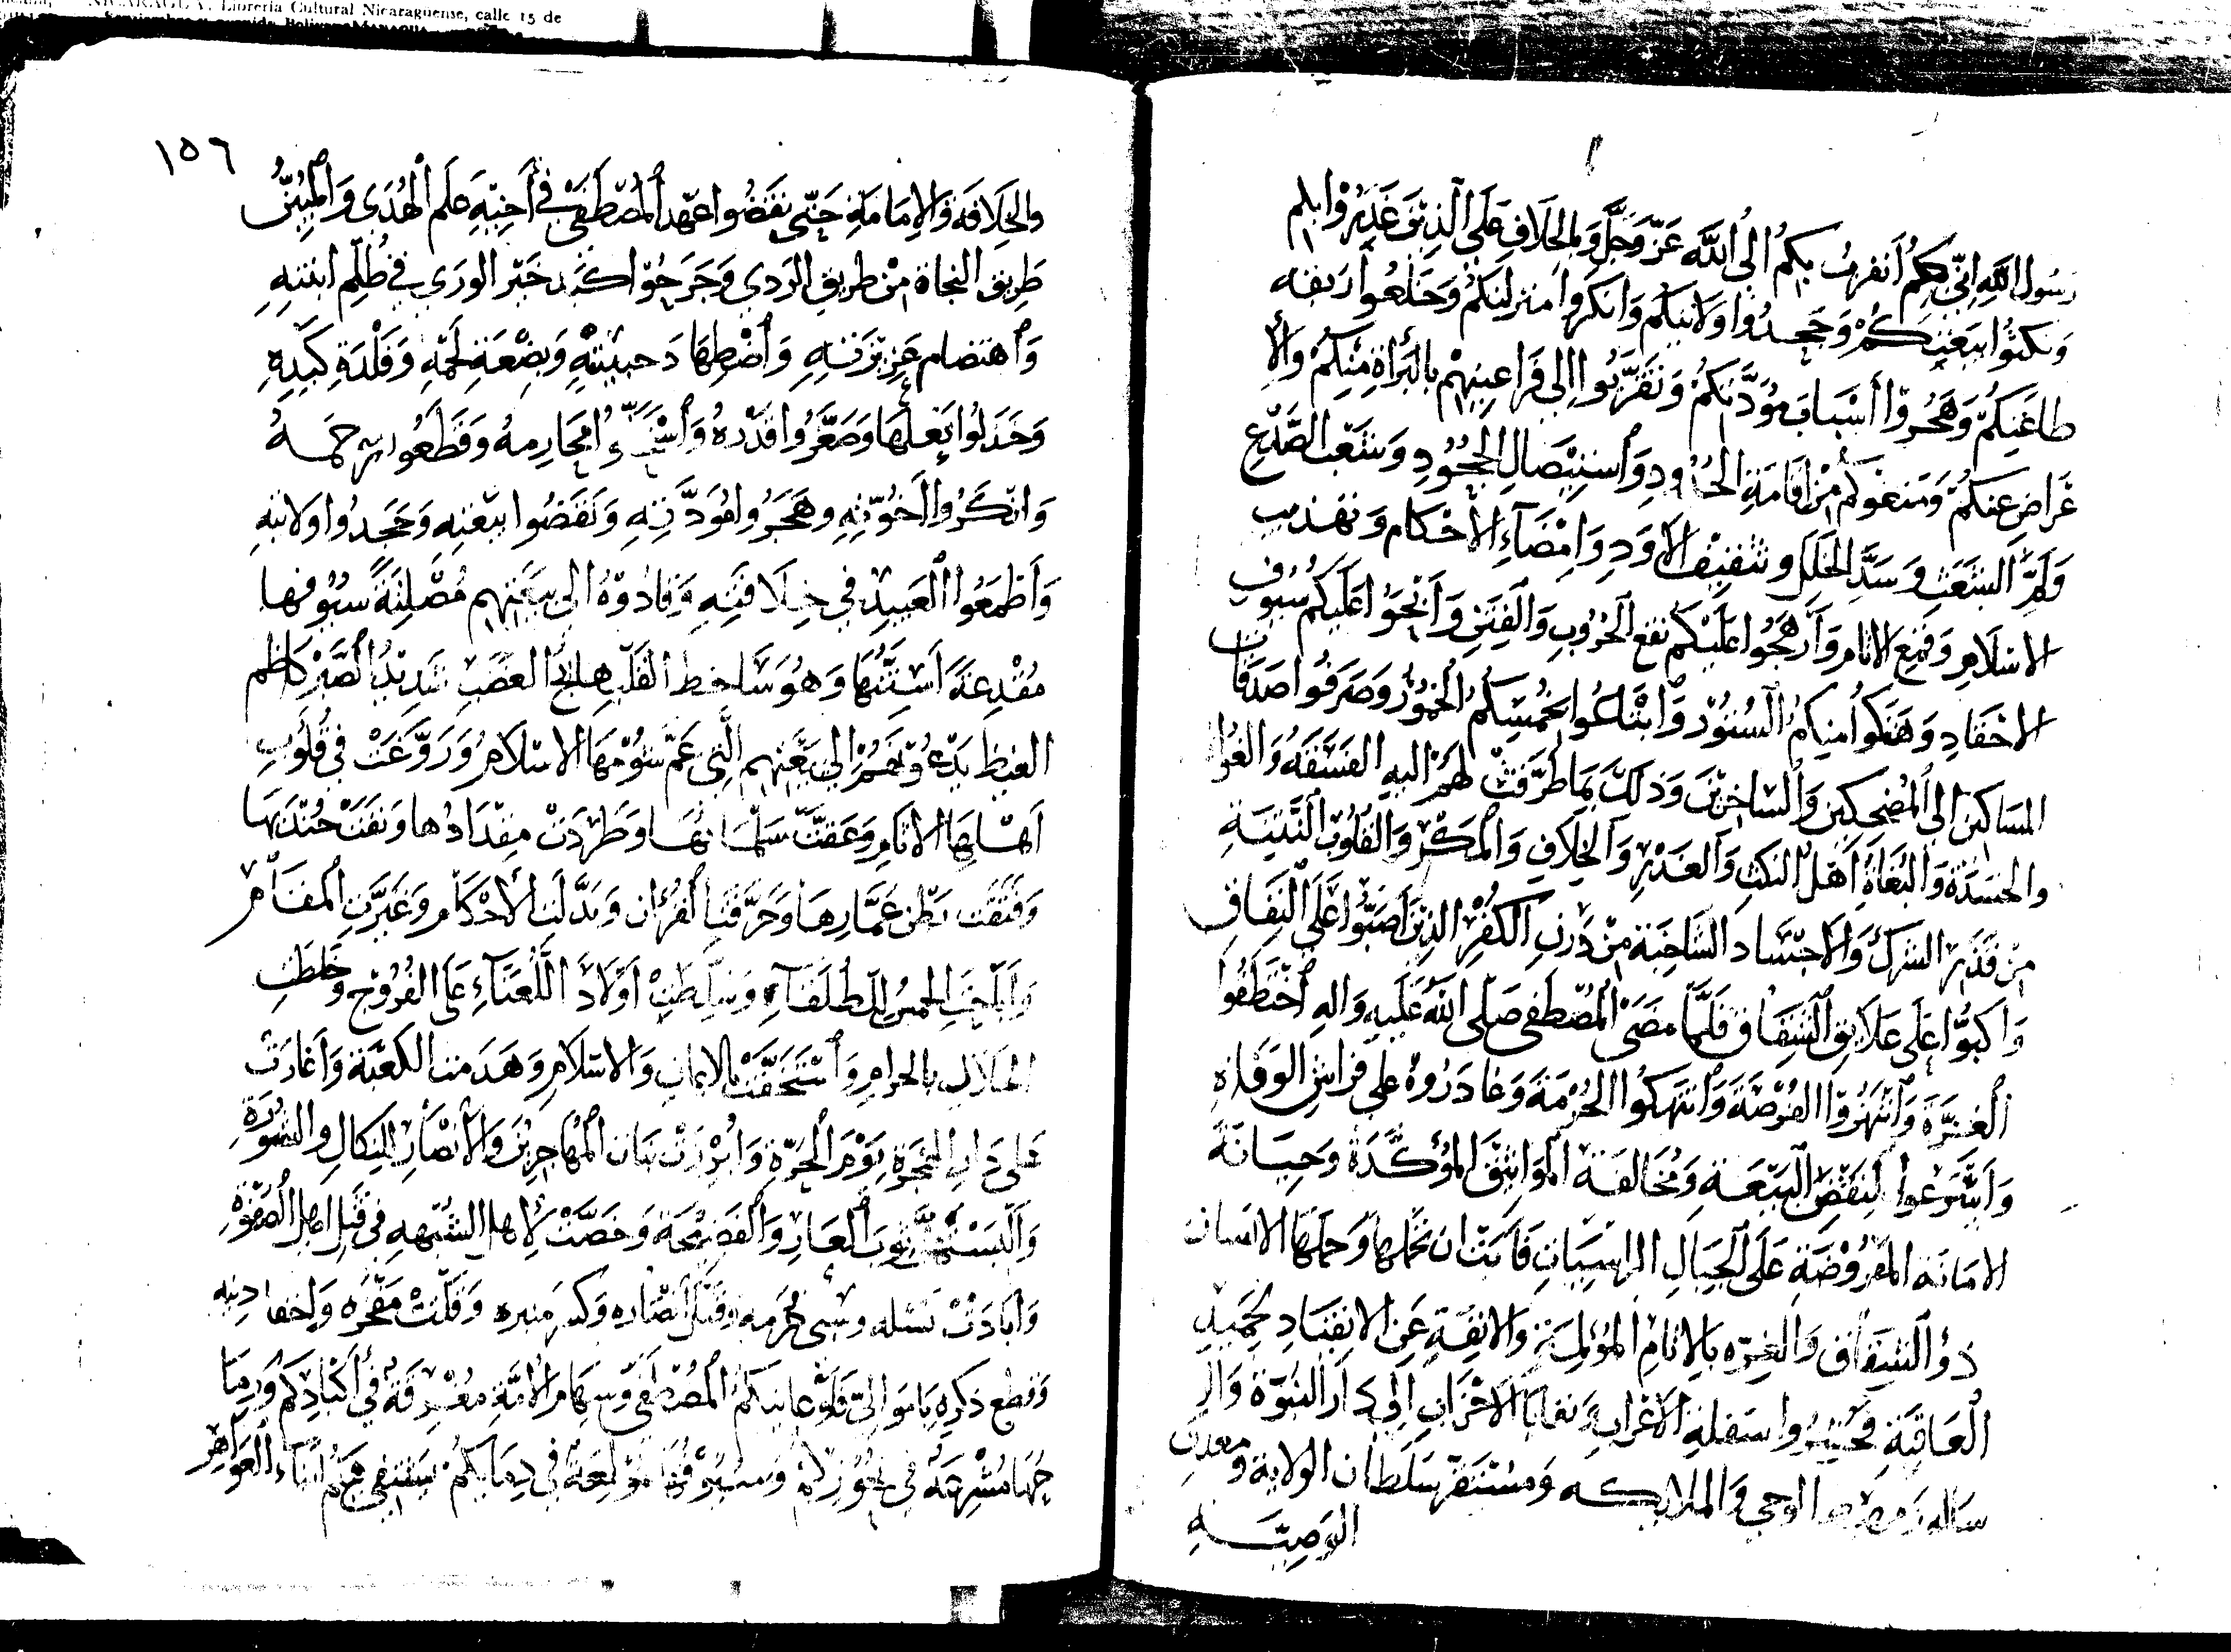 رسول الله اني بكم اتقرب بكم الى الله عز وجل وبالخلاف على الذين غدروا بكم
ونكثوا بيعتكم وجحدوا ولايتكم وانكروا منزلتكم وخلعوا ربقه
طاعتكم وهجروا أسباب مودتكم وتقربوا الى فراعنتهم بالبرأة منكم والأ
عراض عنكم ومنعوكم من اقامة الحدود واستيصال الجحود وشعب الصدع
ولم الشعث وسد الخلل وتثقيف الاود وامضآء الأحكام وتهذيب
الاسلام وقمع الاثام وأرهجوا عليكم نقع الحروب والفتن وأنحوا عليكم سيوف
الاحقاد وهتكوا منكم الستور وابتاعوا بخمسكم الخمور وصرفوا صدقات
المساكين الى المضحكين والساخرين وذلك بما طرقت لهم اليه الفسقه والغوا
والحسدة والبغاة أهل النكث والغدر والخلاف والمكر والقلوب النتنة
من قذر الشرك والاجساد الشاحنة من درن الكفر الذين اضبوا على النفاق
واكبوا على علايق الشقاق فلما مضى المصطفى صلى الله عليه واله اختطفوا
الغرة وانتهزوا الفرصة وانتهكوا الحرمة وغادروه على فراش الوفاة
واسرعوا لنقض البيعة ومخالفة المواثيق المؤكدة وخيانة
الامانه المعروضة على الجبال الراسيات فابت ان تحملها وحملها الانسان
ذو الشقاق والغره بالاثام المؤلمة والانفة عن الانقياد لحميد
العاقبة فحشروا سفلة الأعراب وبقايا الاحزاب الى دار النبوة والر
سالة ومهبط الوحي والملائكه ومستقر سلطان الولاية ومعدن
الوصية
١٥٦
والخلافه والإمامة حتى نقضوا عهد المصطفى في أخيه علم الهدى والمبين
طريق النجاة من طريق الردي وجرحوا كبد خير الورى في ظلم ابنته
واهتضام عزيزته واضطهاد حبيبته وبضعة لحمه وفلذة كبده
وخذلوا بعلها وصغروا قدره واستحلوا محارمه وقطعوا رحمه
وانكروا أخوته وهجروا مودته ونقضوا بيعته وجحدوا ولايته
وأطمعوا العبيد في خلافته وقادوه الى بيعتهم مصلتة سيوفها
مقذعة أسنتها وهو ساخط القلب هايج الغضب شديد الصبر كاظم
الغيظ يدعونه الى بيعتهم التي عم شومها الاسلام وزرعت في قلوب
أهلها الاثام وعقت سلمانها وطردت مقدادها ونفت جندبها
وفتقت بطن عمارها وحرفت القرآن وبدلت الأحكام وغيرت المقام
وأباحت الخمس للطلقآء وسلطت أولاد اللعنآء على الفروج وخلطت
الحلال بالحرام واستخفت بالايمان والاسلام وهدمت الكعبة وأغارت
على دار الهجرة يوم الحرة وابرزت بنات المهاجرين والأنصار للنكال والسورة
والبستهن ثوب العار والفضيحة ورخصت لأهل الشبهه في قتل اهل الصفوة
وأبادت نسله وسبى حرمه وقتل أنصاره وكسر منبره وقلب مفخره واخفا دينه
وقطع ذكره يا موالي فلو عاينكم المصطفى وسهام الأمة معرقة في أكبادكم ورما
حها مشرعة في نحوركم وسيوفها مولعة في دمايكم يشتفي ابناء العواهر